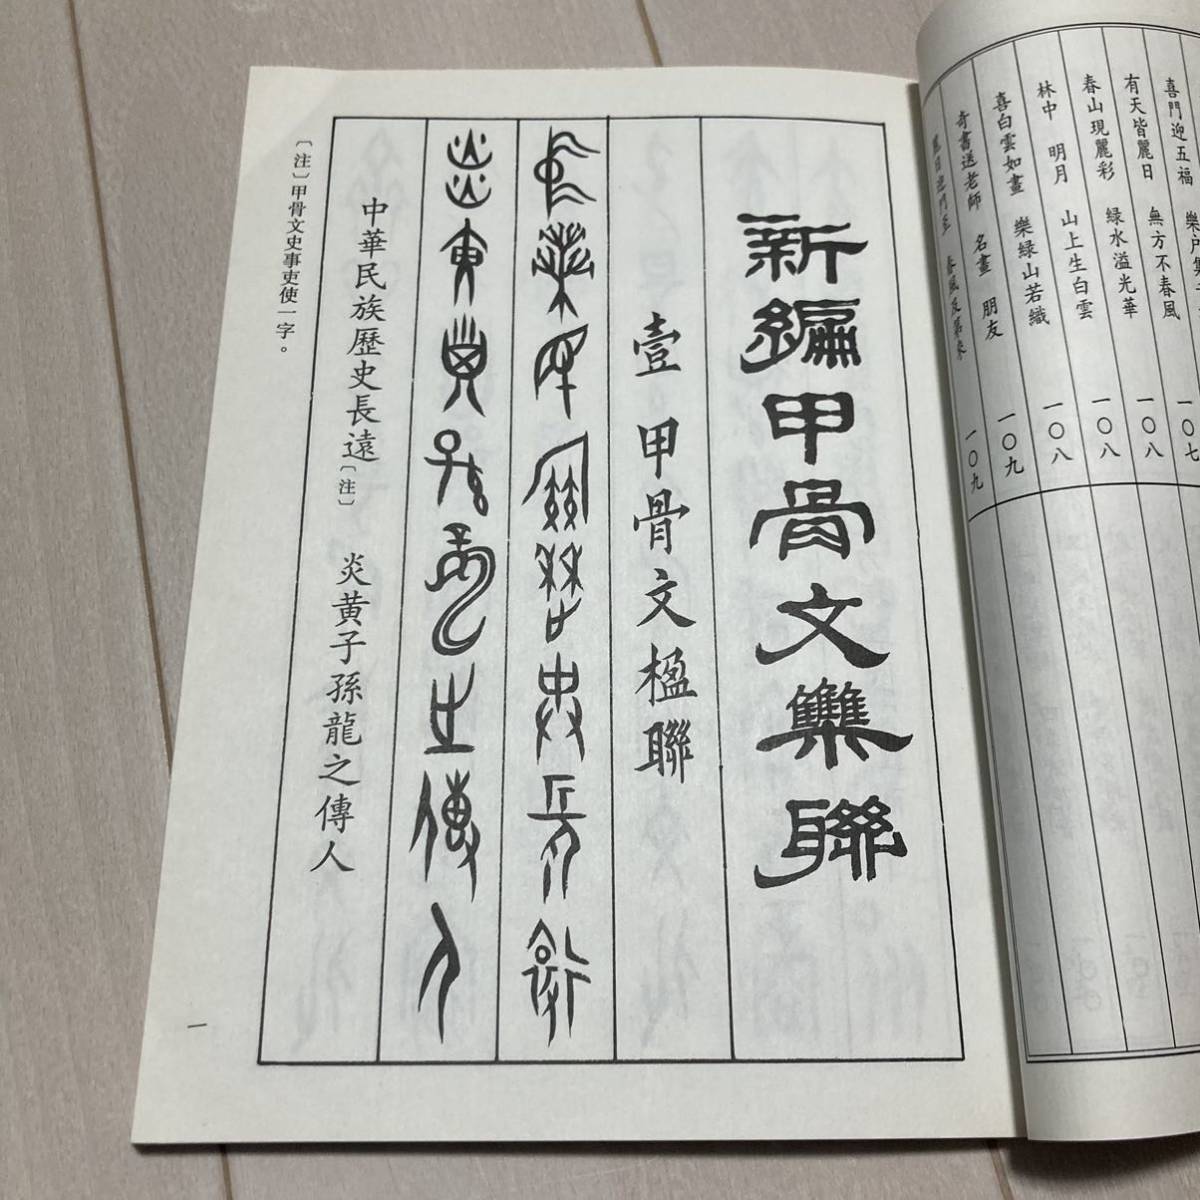 喜門迎五福 樂
有天皆麗日 無方不春風 一〇七
春山現麗彩 綠水溢光華 一〇八
林中 明月 山上生白雲 一〇八
喜白雲如畫 樂綠山若織 一〇八
奇書送老師 名畫 朋友 一〇九
麗日迎門至 春風及第來 一〇九
新編甲骨文集聯
壹。甲骨文楹聯
中華民族歷史長遠
炎黃子孫龍之傳人
中華民族歷史長遠〔注〕 炎黃子孫龍之傳人
〔注〕甲骨文史事吏使一字。
一